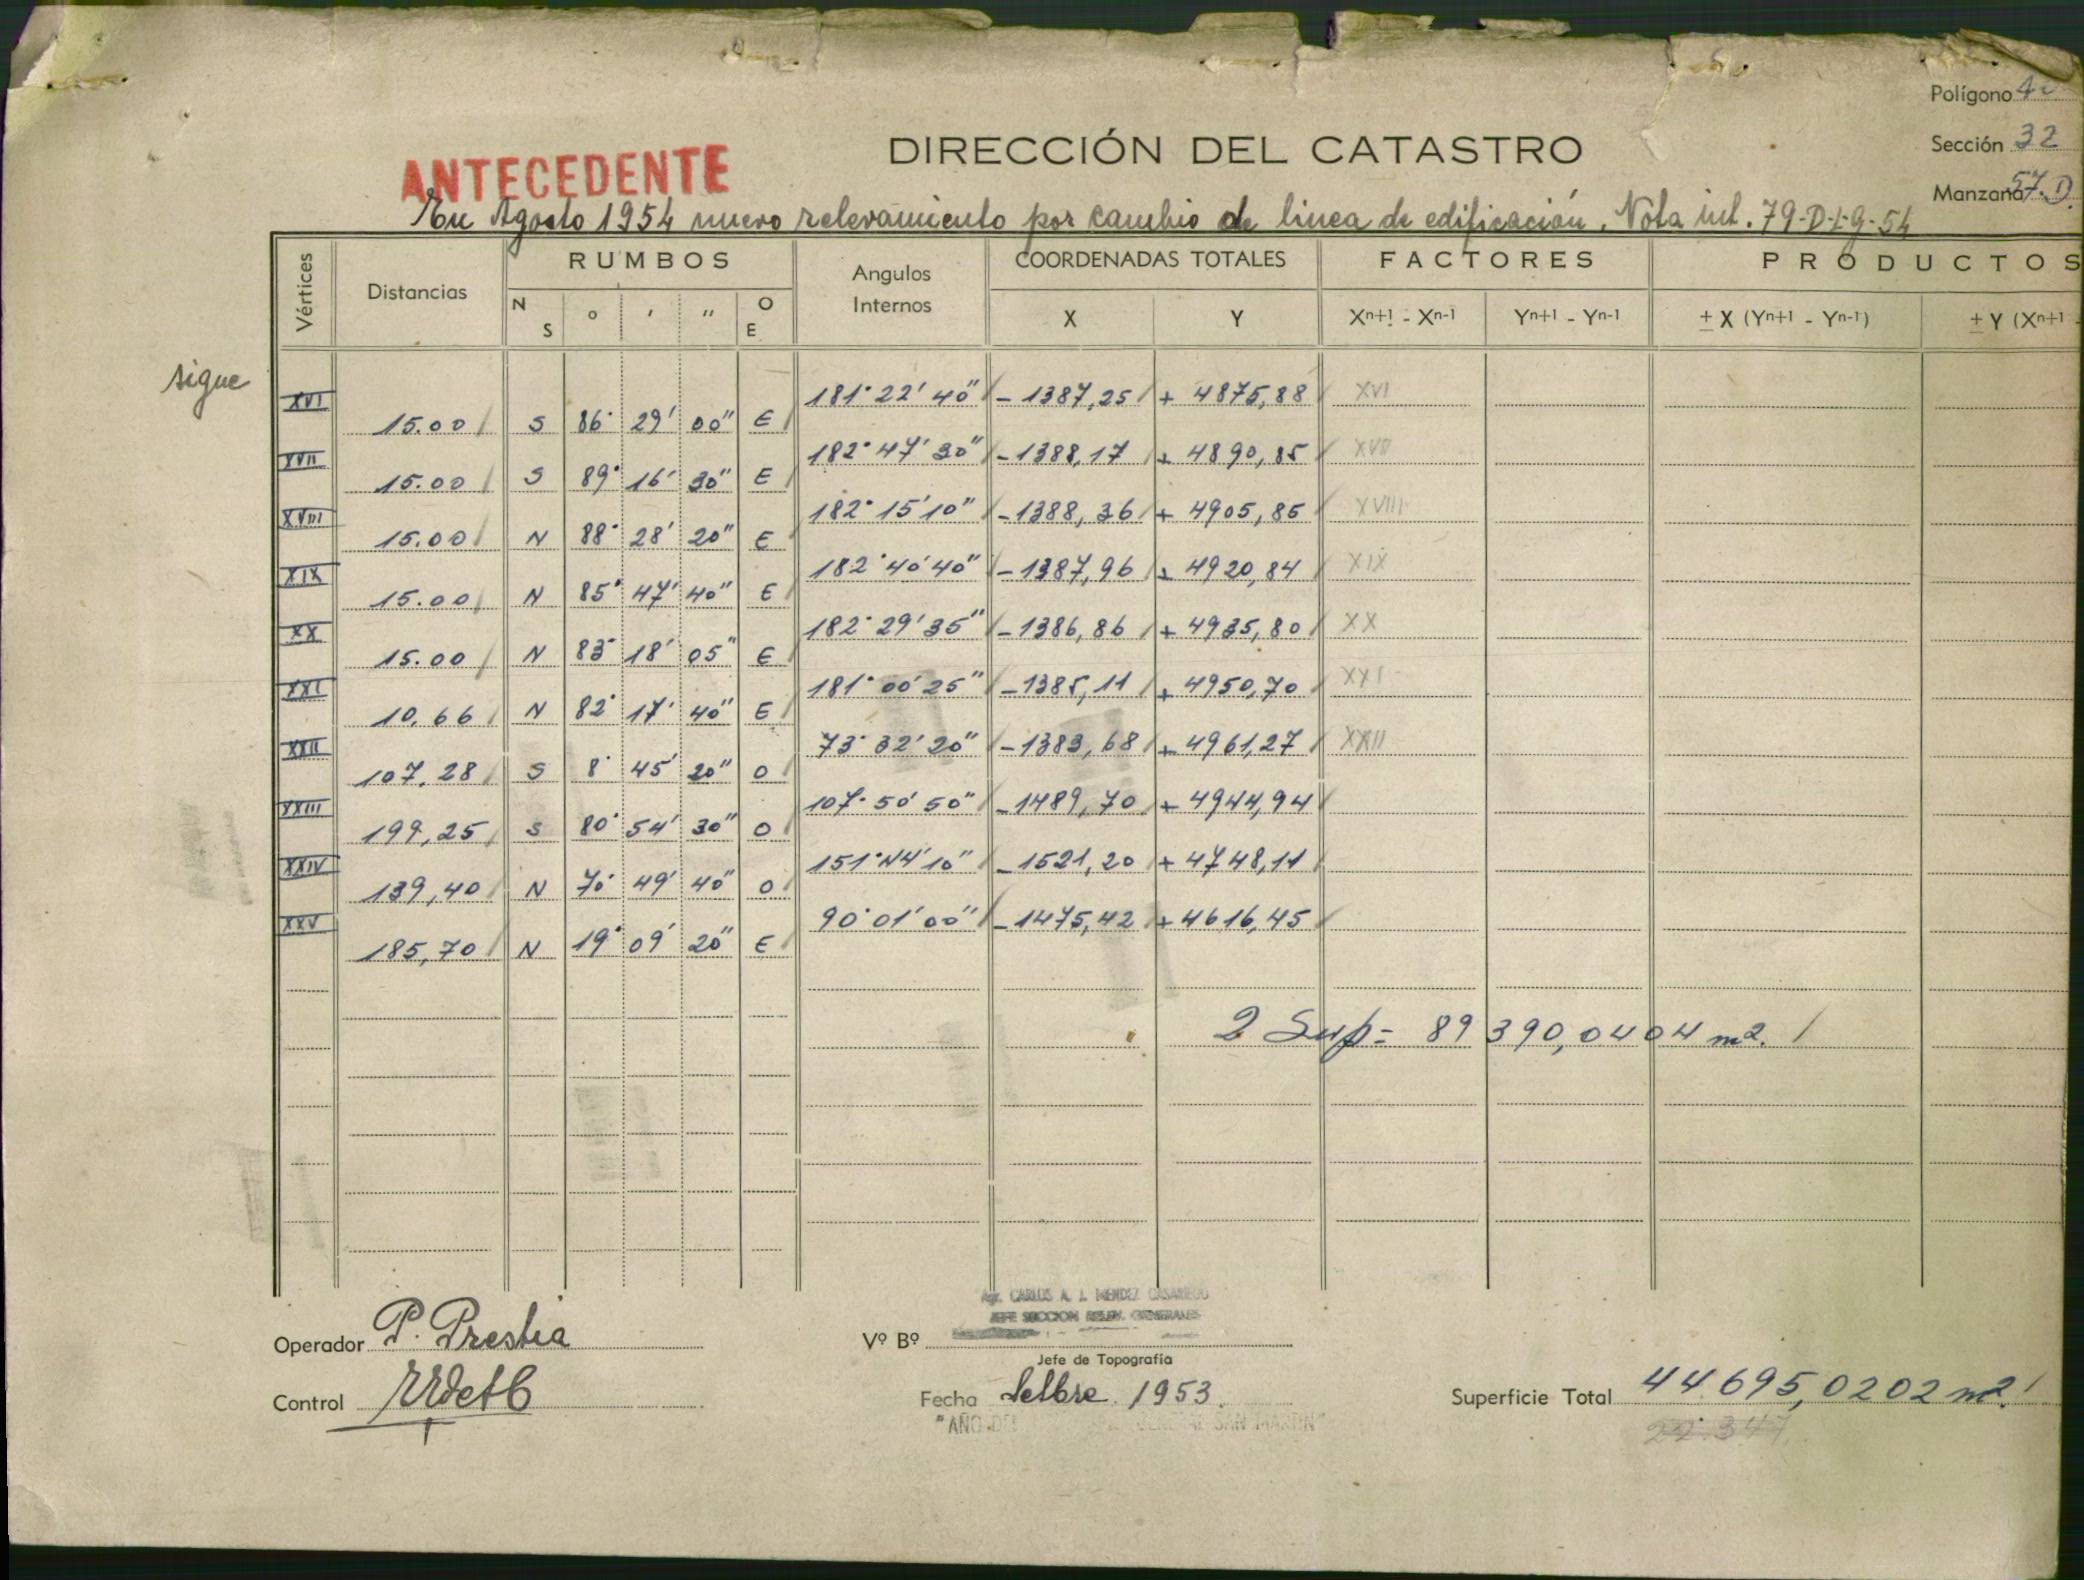 Polígono
DIRECCIÓN DEL CATASTRO
Sección 32
ANTECEDENTE
Manzana 57.D.
En Agosto 1954 nuevo relevamiento por cambio de linea de edificación. Nota int. 79-D-I-G-54
Vértices Distancias RUMBOS Angulos Internos COORDENADAS TOTALES FACTORES PRODUCTOS
N S ° ' " O E X Y Xⁿ⁺¹ - Xⁿ⁻¹ Yⁿ⁺¹ - Yⁿ⁻¹ ± X (Yⁿ⁺¹ - Yⁿ⁻¹) ± Y (Xⁿ⁺¹ -
sigue
XVI 181° 22' 40" - 1387,25 + 4875,88 XVI
15.00 S 86° 29' 00" E
XVII 182° 47' 30" - 1388,17 + 4890,85 XVII
15.00 S 89° 16' 30" E
XVIII 182° 15' 10" - 1388,36 + 4905,85 XVIII
15.00 N 88° 28' 20" E
XIX 182° 40' 40" - 1387,96 + 4920,84 XIX
15.00 N 85° 47' 40" E
XX 182° 29' 35" - 1386,86 + 4935,80 XX
15.00 N 83° 18' 05" E
XXI 181° 00' 25" - 1385,11 + 4950,70 XXI
10,66 N 82° 17' 40" E
XXII 73° 32' 20" - 1383,68 + 4961,27 XXII
107,28 S 8° 45' 20" O
XXIII 107° 50' 50" - 1489,70 + 4944,94
199,25 S 80° 54' 30" O
XXIV 151° 44' 10" - 1521,20 + 4748,11
139,40 N 70° 49' 40" O
XXV 90° 01' 00" - 1475,42 + 4616,45
185,70 N 19° 09' 20" E
2 Sup = 89390,0404 m2.
CARLOS A. J. MENDEZ CASARIEGO
JEFE SECCION RELEV. GENERALES
Operador P. Prestia
Vº Bº
Jefe de Topografía
Control
Fecha Setbre. 1953.
Superficie Total 44.695,0202 m2.
"AÑO DEL GENERAL SAN MARTIN"
22.347